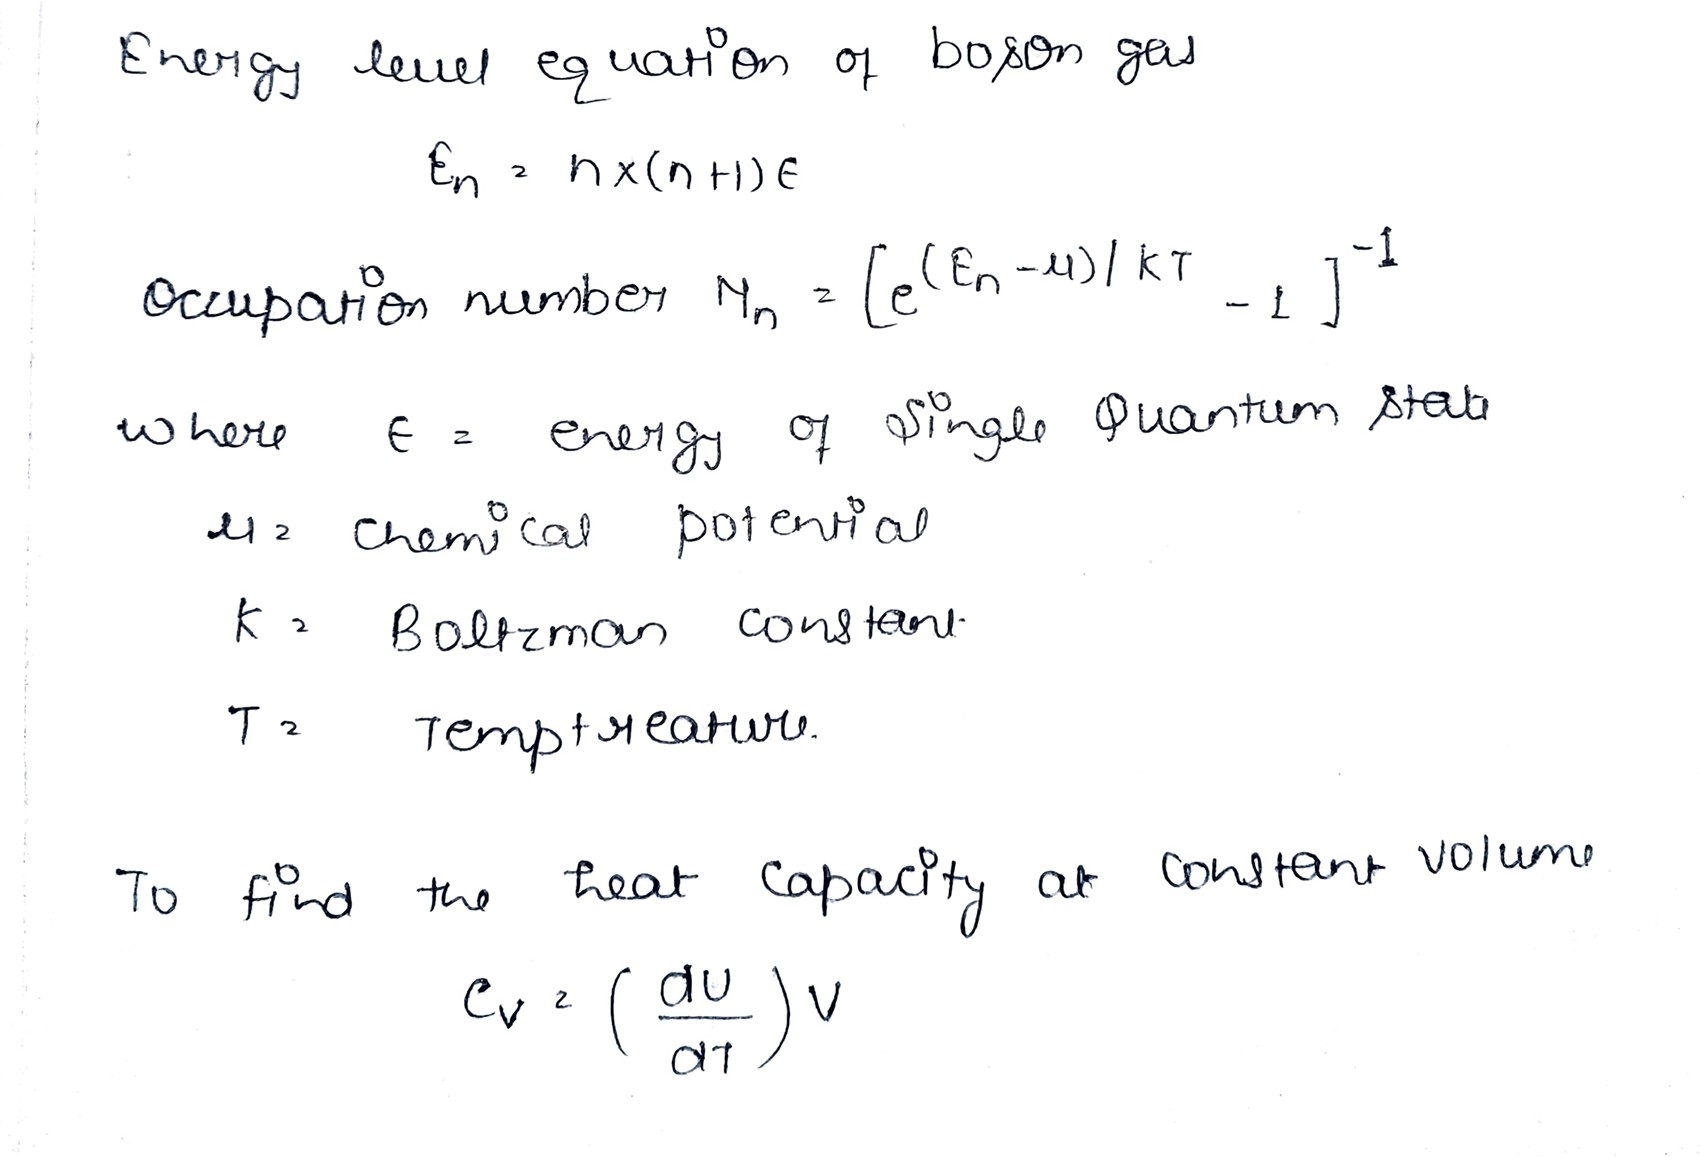 Energy level equation of boson gas
En = n×(n+1)ϵ
Occupation number Nn = [e^(En-μ)/KT - 1]^-1
where ϵ = energy of single Quantum state
μ = chemical potential
K = Boltzman constant.
T = Temptreature.
To find the heat capacity at constant volume
Cv = (du/dT)v